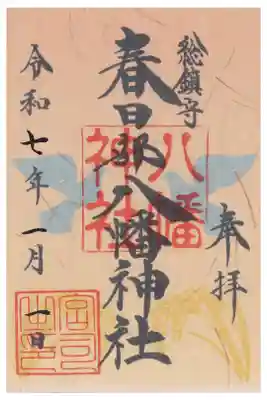 総鎮守
奉拝
春日部八幡神社
八幡
神社
令和七年一月一日
宮司之印